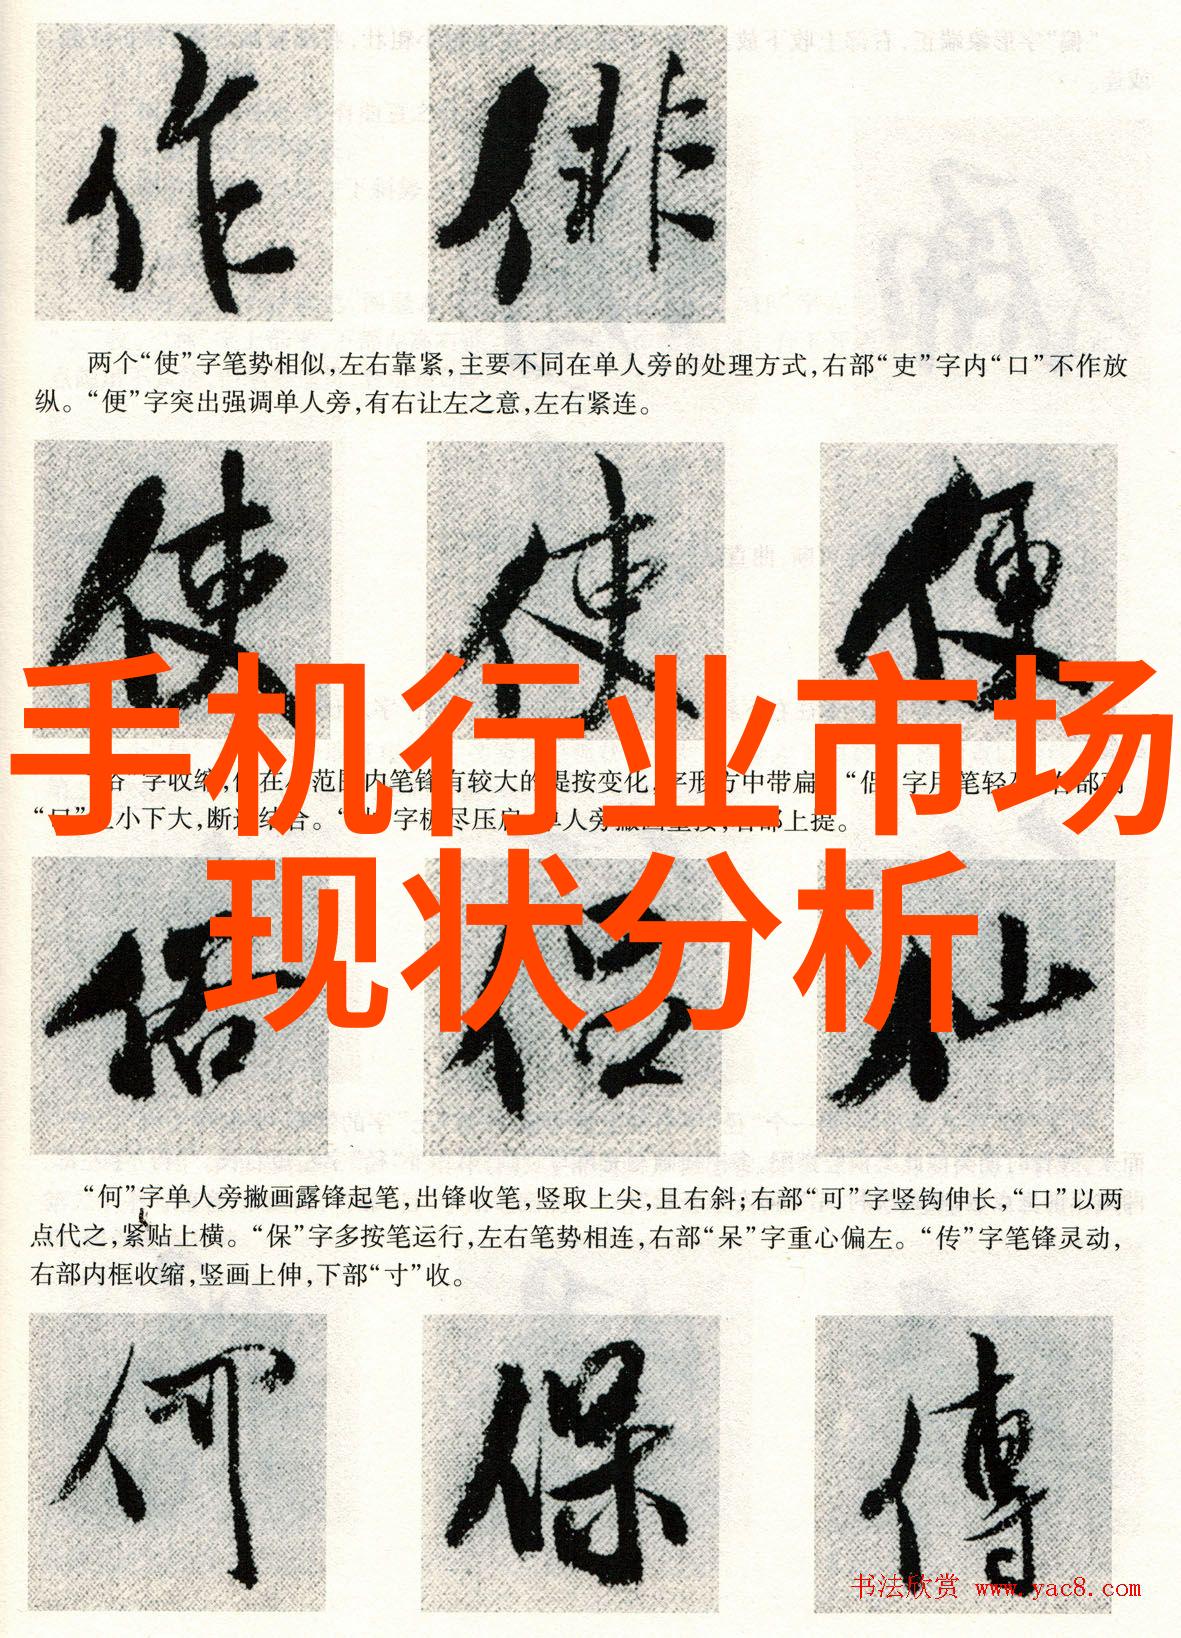 作 俳
两个“使”字笔势相似,左右靠紧,主要不同在单人旁的处理方式,右部“吏”字内“口”不作放
纵。“便”字突出强调单人旁,有右让左之意,左右紧连。
使 使 便
手机行业市场
字收缩,但在 范围内笔锋有较大的提按变化,字形方中带扁。“侣”字用笔轻 右部两
“口”上小下大,断连结合。 字极尽压扁,单人旁撇画重按,右部上提。
现状分析
俗 侣 仙
“何”字单人旁撇画露锋起笔,出锋收笔,竖取上尖,且右斜;右部“可”字竖钩伸长,“口”以两
点代之,紧贴上横。“保”字多按笔运行,左右笔势相连,右部“呆”字重心偏左。“传”字笔锋灵动,
右部内框收缩,竖画上伸,下部“寸”收。
何 保 傳
书法欣赏 www.yac8.com